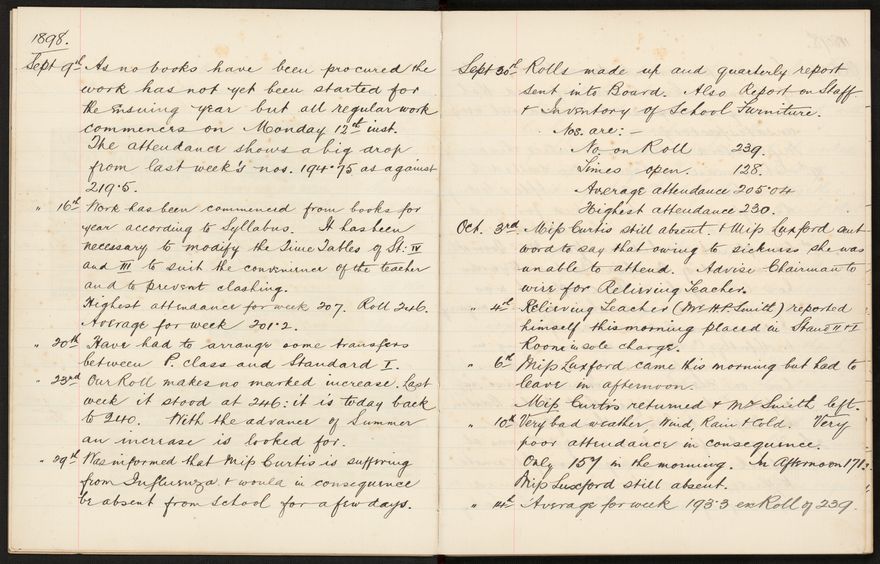 1898.
Sept 9th As no books have been procured the
work has not yet been started for
the ensuing year but all regular work
commences on Moonday 12th inst.
The attendance shows a big drop
from last week's nos. 194.75 as against
219.5.
" 16th Work has been commenced from books for
year according to Syllabus. It has been
necessary to modify the Time Tables of St: IV
and III to suit the convenience of the teacher
and to prevent clashing.
Highest attendance for week 207. Roll 246.
Average for week 201.2.
" 20th Have had to arrange some transfers
between P. class and Standard I.
" 23rd Our Roll makes no marked increase. Last
week it stood at 246: it is today back
to 240. With the advance of Summer
an increase is looked for.
" 29th Was informed that Miss Curtis is suffering
from Influenza & would in consequence
be absent from School for a few days.
Sept 30th Rolls made up and quarterly report
sent into Board. Also Report on Staff
& Inventory of School Furniture.
Nos. are:-
No. on Roll 239.
Times open. 128.
Average attendance 205.04
Highest attendance 230.
Oct. 3rd Miss Curtis still absent. & Miss Luxford sent
word to say that owing to sickness she was
unable to attend. Advise Chairman to
wire for Relieving Teacher.
" 4th Relieving Teacher (Mr H.P. Smith) reported
himself this morning placed in Stand II & I
Room in sole charge.
" 6th Miss Luxford came this morning but had to
leave in afternoon.
Miss Curtis returned & Mr Smith left.
" 10th Very bad weather, Wind, Rain & Cold. Very
poor attendance in consequence.
Only 157 in the morning. In Afternoon 171.
Miss Luxford still absent.
" 14th Average for week 193.3 ex Roll of 239.